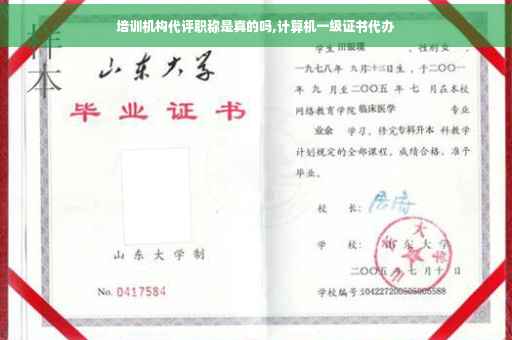 培训机构代评职称是真的吗,计算机一级证书代办
样本
山东大学
毕业证书
山东大学制
No. 0417584
学生 性别女,
一九七八年 九月十三日生,于二〇〇一
年 九 月至二〇〇五 年 七 月在本校
网络教育学院 临床医学 专业
业余 学习,修完专科升本科教学
计划规定的全部课程,成绩合格,准予
毕业。
校 长:
学 校: 山东大学
二〇〇五 年 七 月 十 日
学校编号: